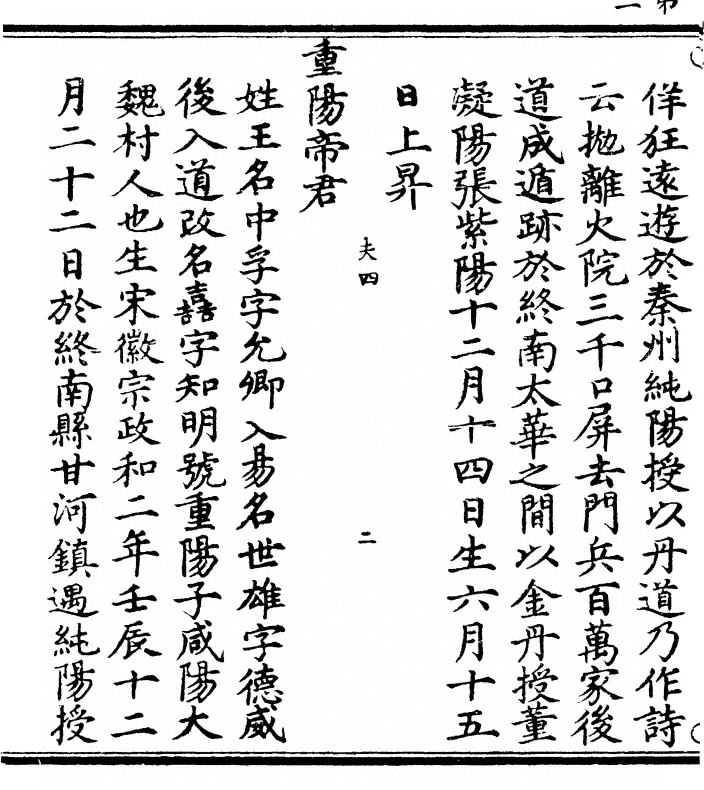 佯狂遠遊於秦州純陽授以丹道乃作詩
云拋離火院三千口屏去門兵百萬家後
道成遁跡於終南太華之間以金丹授董
凝陽張紫陽十二月十四日生六月十五
日上昇
夫四
二
重陽帝君
姓王名中孚字允卿入易名世雄字德威
後入道改名嚞字知明號重陽子咸陽大
魏村人也生宋徽宗政和二年壬辰十二
月二十二日於終南縣甘河鎮遇純陽授